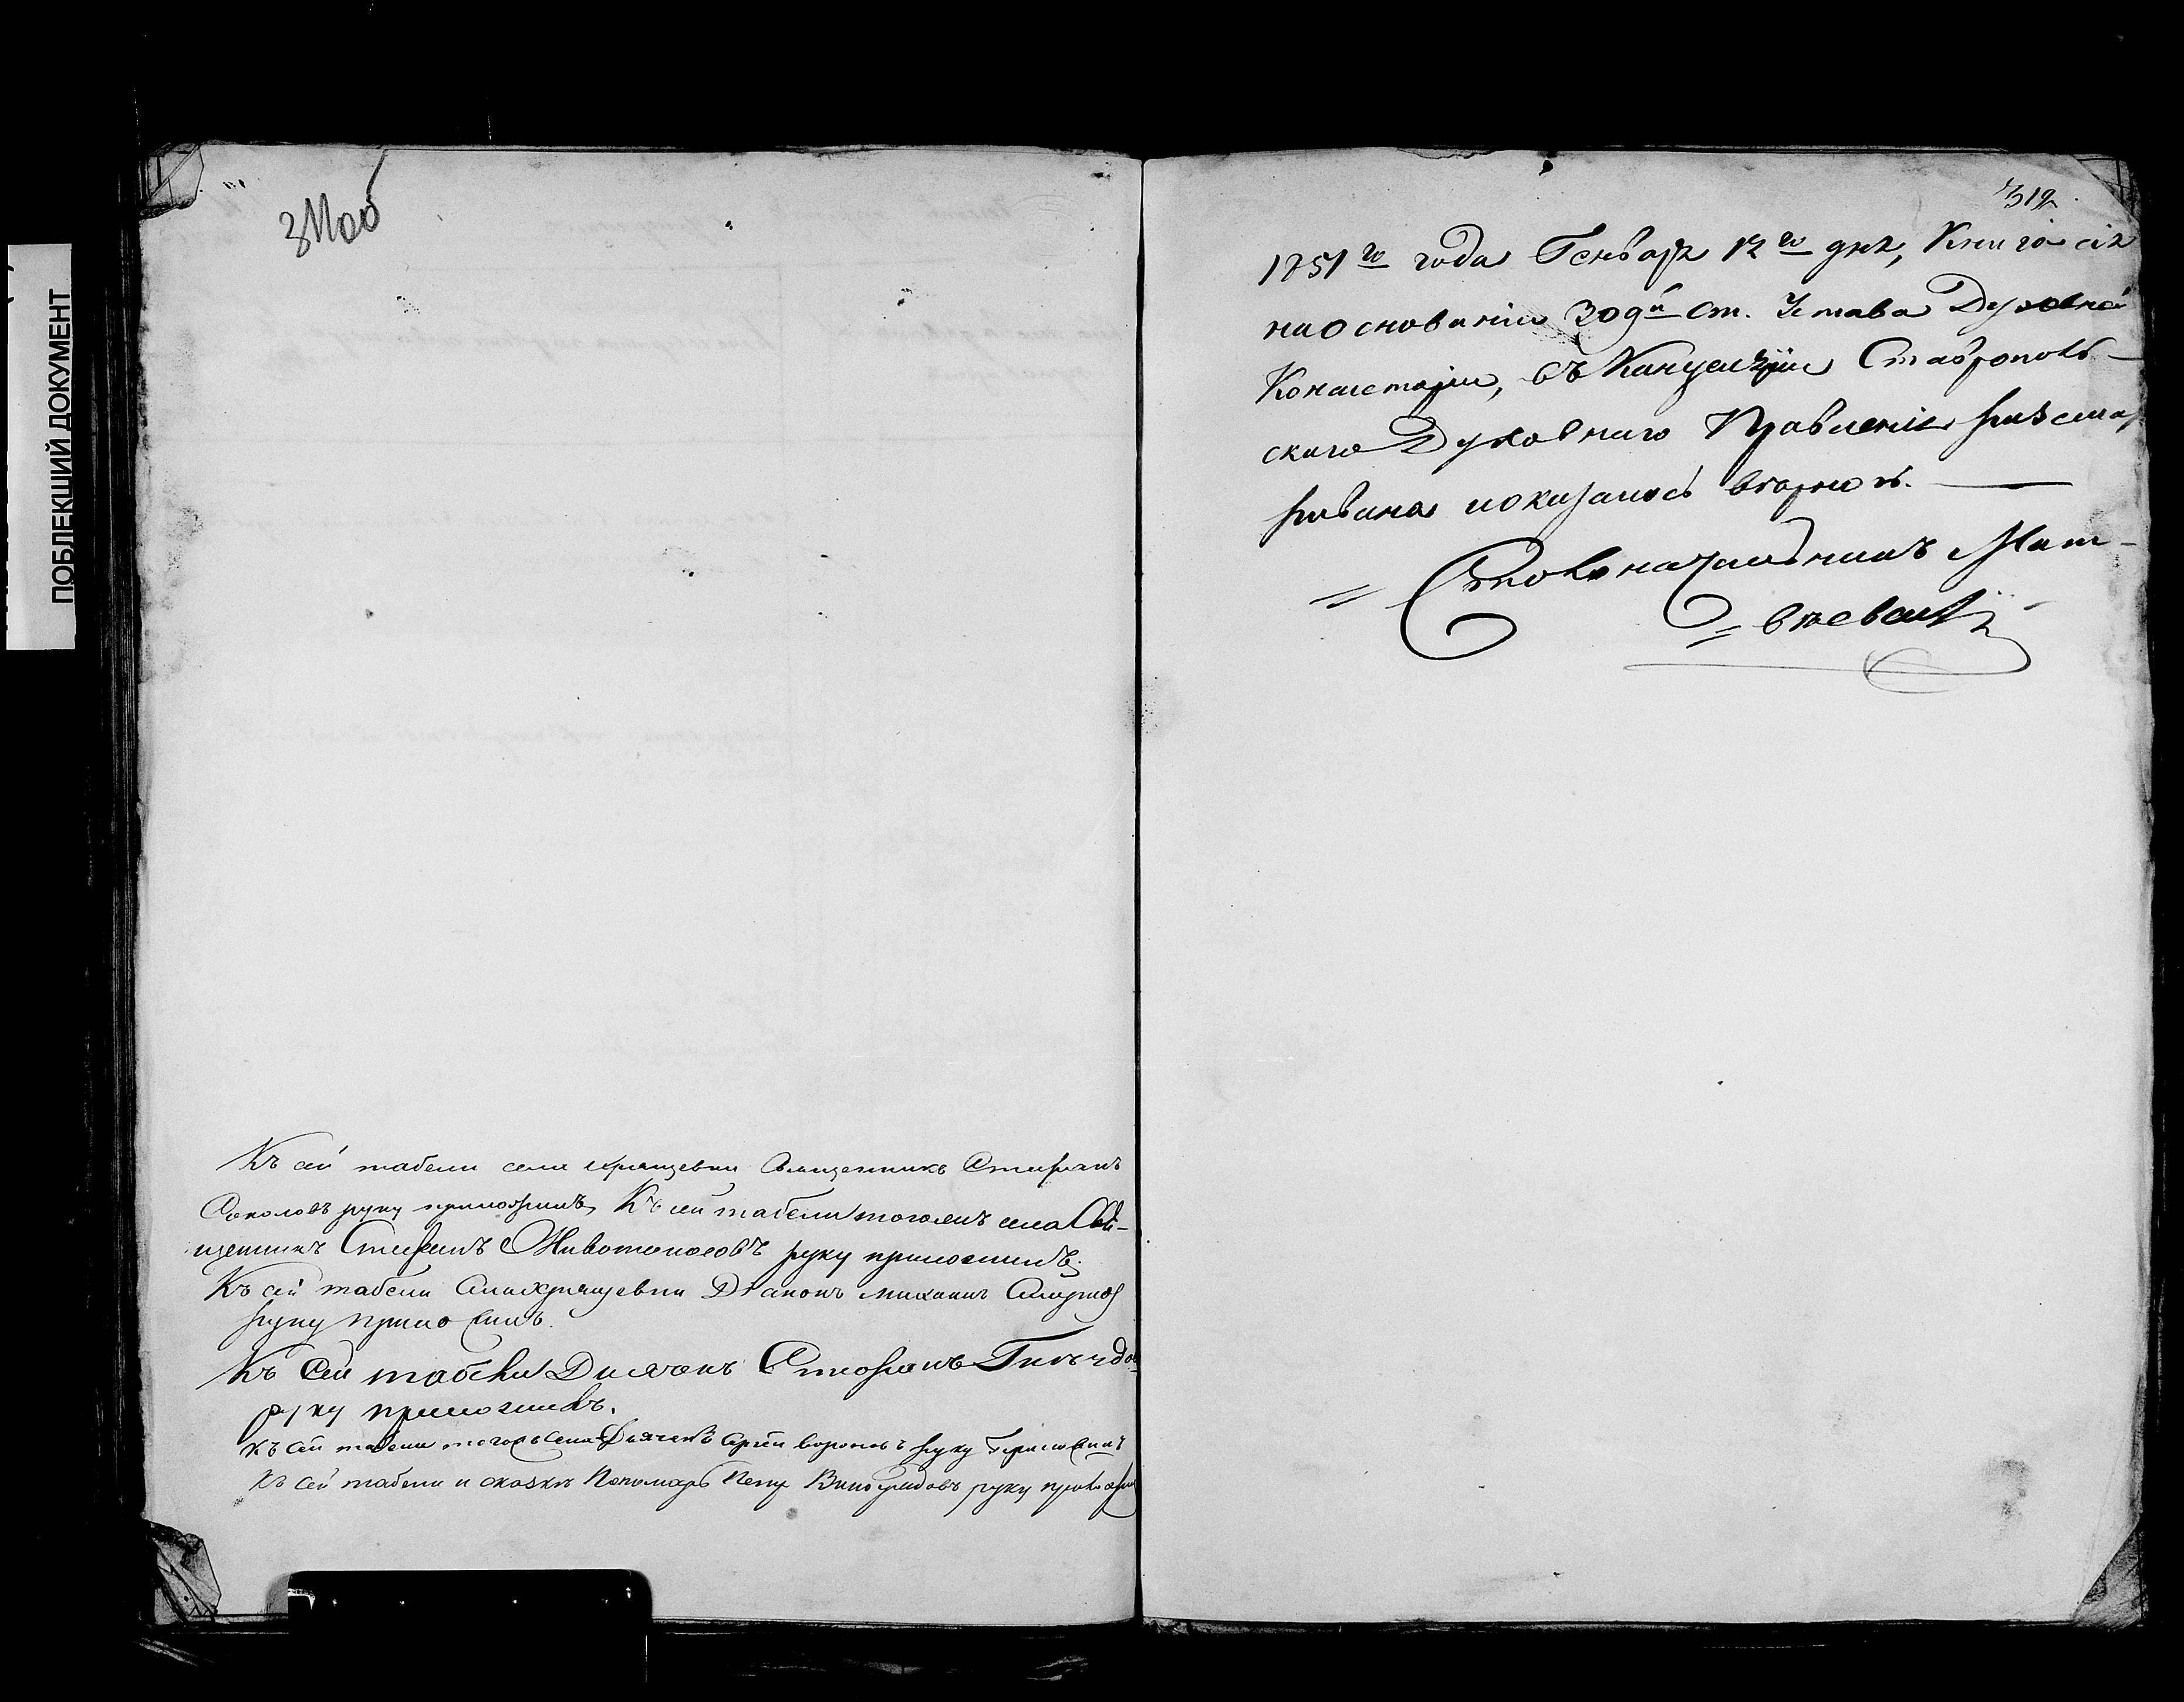 ПОБЛЕКШИЙ ДОКУМЕНТ
311об
Къ сей табели села Хрящевки Священникъ Стефанъ
Соколовъ руку приложилъ, Къ сей табели тогожъ села Свя-
щенникъ Стефанъ Животоносовъ руку приложилъ.
Къ сей табели села Хрящевки Діаконъ Михаилъ Смирнов
руку приложилъ.
Къ Сей табели Дьячокъ Стефанъ
руку приложилъ.
Къ сей табели тогожъ села Дьячекъ Сергей Вороновъ руку приложилъ
Къ сей табели и сказкѣ Пономарь Петр Виноградовъ руку приложил
312
1851го года Генваря 12го дня, Книга сія
на основаніи ст. Устава Духовной
Консисторіи, въ Канцеляріи Ставрополь-
скаго Духовнаго Правленія
показалась вѣрною.
Столоначальникъ Мат-
вѣевскій